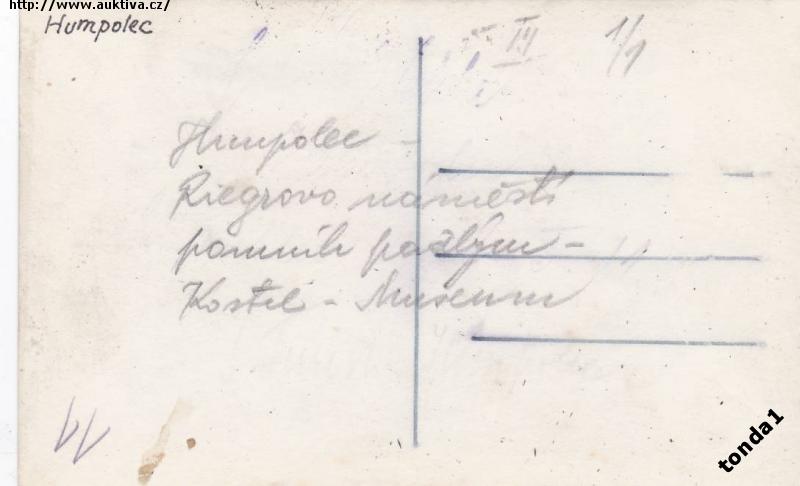 http://www.auktiva.cz/
Humpolec
III 1/1
Humpolec -
Riegrovo náměstí
pomník padlým -
Kostel - Museum
tonda1